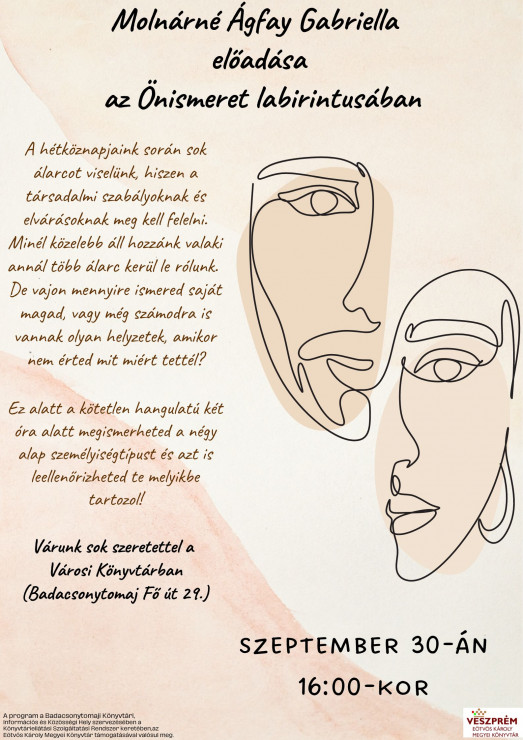 Molnárné Ágfay Gabriella
előadása
az Önismeret labirintusában
A hétköznapjaink során sok
álarcot viselünk, hiszen a
társadalmi szabályoknak és
elvárásoknak meg kell felelni.
Minél közelebb áll hozzánk valaki
annál több álarc kerül le rólunk.
De vajon mennyire ismered saját
magad, vagy még számodra is
vannak olyan helyzetek, amikor
nem érted mit miért tettél?
Ez alatt a kötetlen hangulatú két
óra alatt megismerheted a négy
alap személyiségtípust és azt is
leellenőrizheted te melyikbe
tartozol!
Várunk sok szeretettel a
Városi Könyvtárban
(Badacsonytomaj Fő út 29.)
SZEPTEMBER 30-ÁN
16:00-KOR
A program a Badacsonytomaji Könyvtári,
Információs és Közösségi Hely szervezésében a
Könyvtárellátási Szolgáltatási Rendszer keretében,az
Eötvös Károly Megyei Könyvtár támogatásával valósul meg.
VESZPRÉM
EÖTVÖS KÁROLY
MEGYEI KÖNYVTÁR